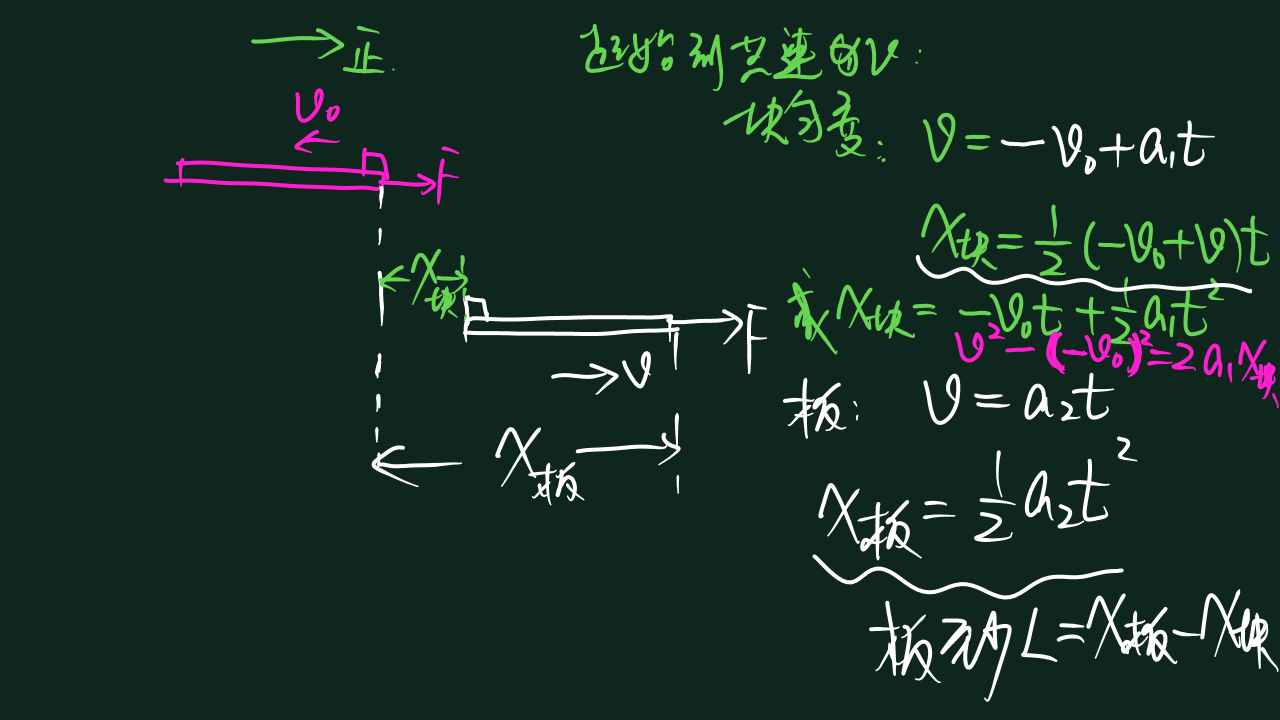 正
v₀
F
x块
F
v
x板
起始到共速的v:
块匀变: v = -v₀ + a₁t
x块 = 1/2 (-v₀ + v)t
或 x块 = -v₀t + 1/2 a₁t²
v² - (-v₀)² = 2a₁x块
板: v = a₂t
x板 = 1/2 a₂t²
板至少 L = x板 - x块